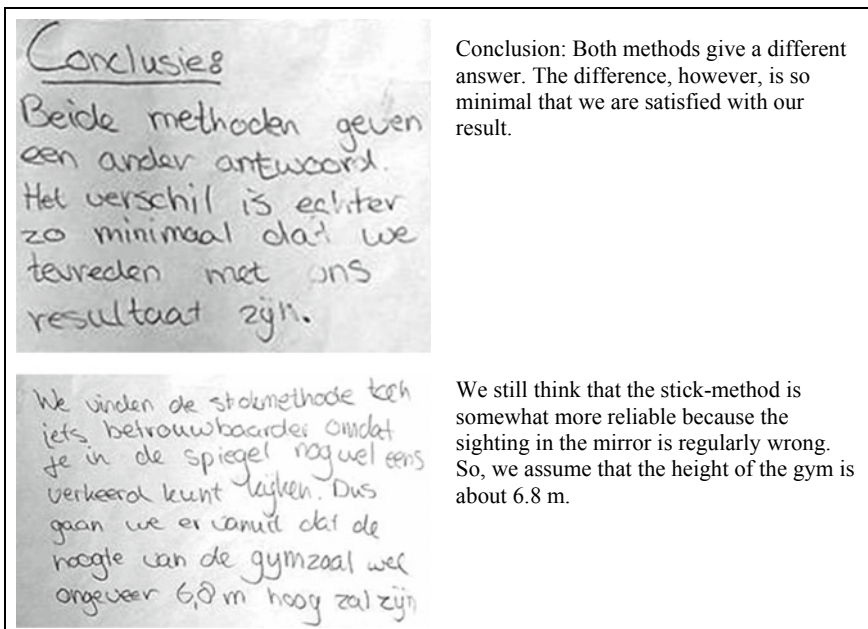 Conclusie:
Beide methoden geven
een ander antwoord.
Het verschil is echter
zo minimaal dat we
tevreden met ons
resultaat zijn.
Conclusion: Both methods give a different
answer. The difference, however, is so
minimal that we are satisfied with our
result.
We vinden de stokmethode toch
iets betrouwbaarder omdat
je in de spiegel nog wel eens
verkeerd kunt kijken. Dus
gaan we er vanuit dat de
hoogte van de gymzaal wel
ongeveer 6,8 m hoog zal zijn
We still think that the stick-method is
somewhat more reliable because the
sighting in the mirror is regularly wrong.
So, we assume that the height of the gym is
about 6.8 m.